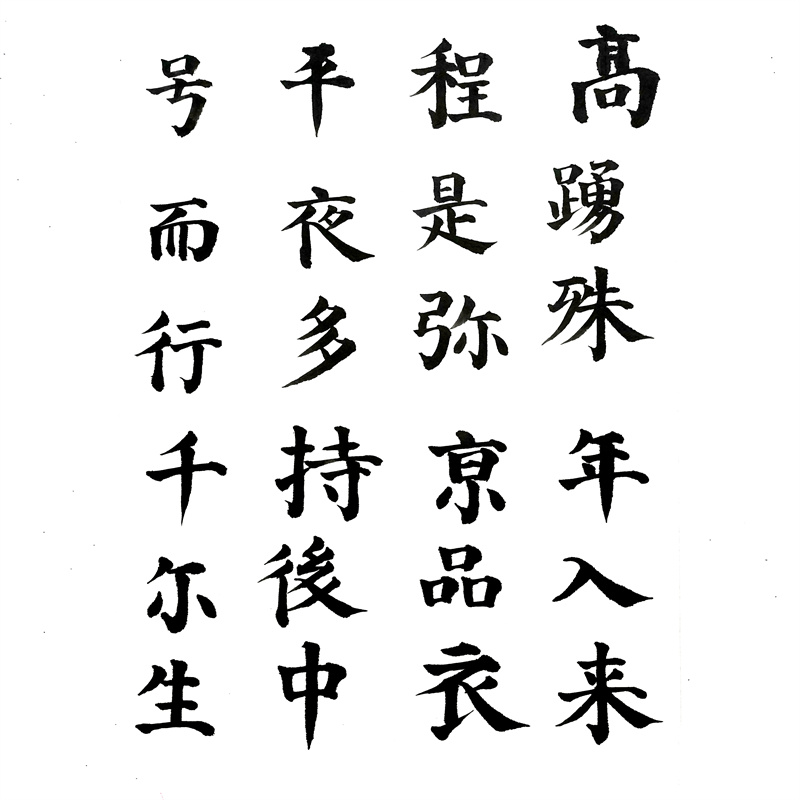 髙踴殊年入来
程是弥亰品衣
平夜多持後中
号而行千尓生